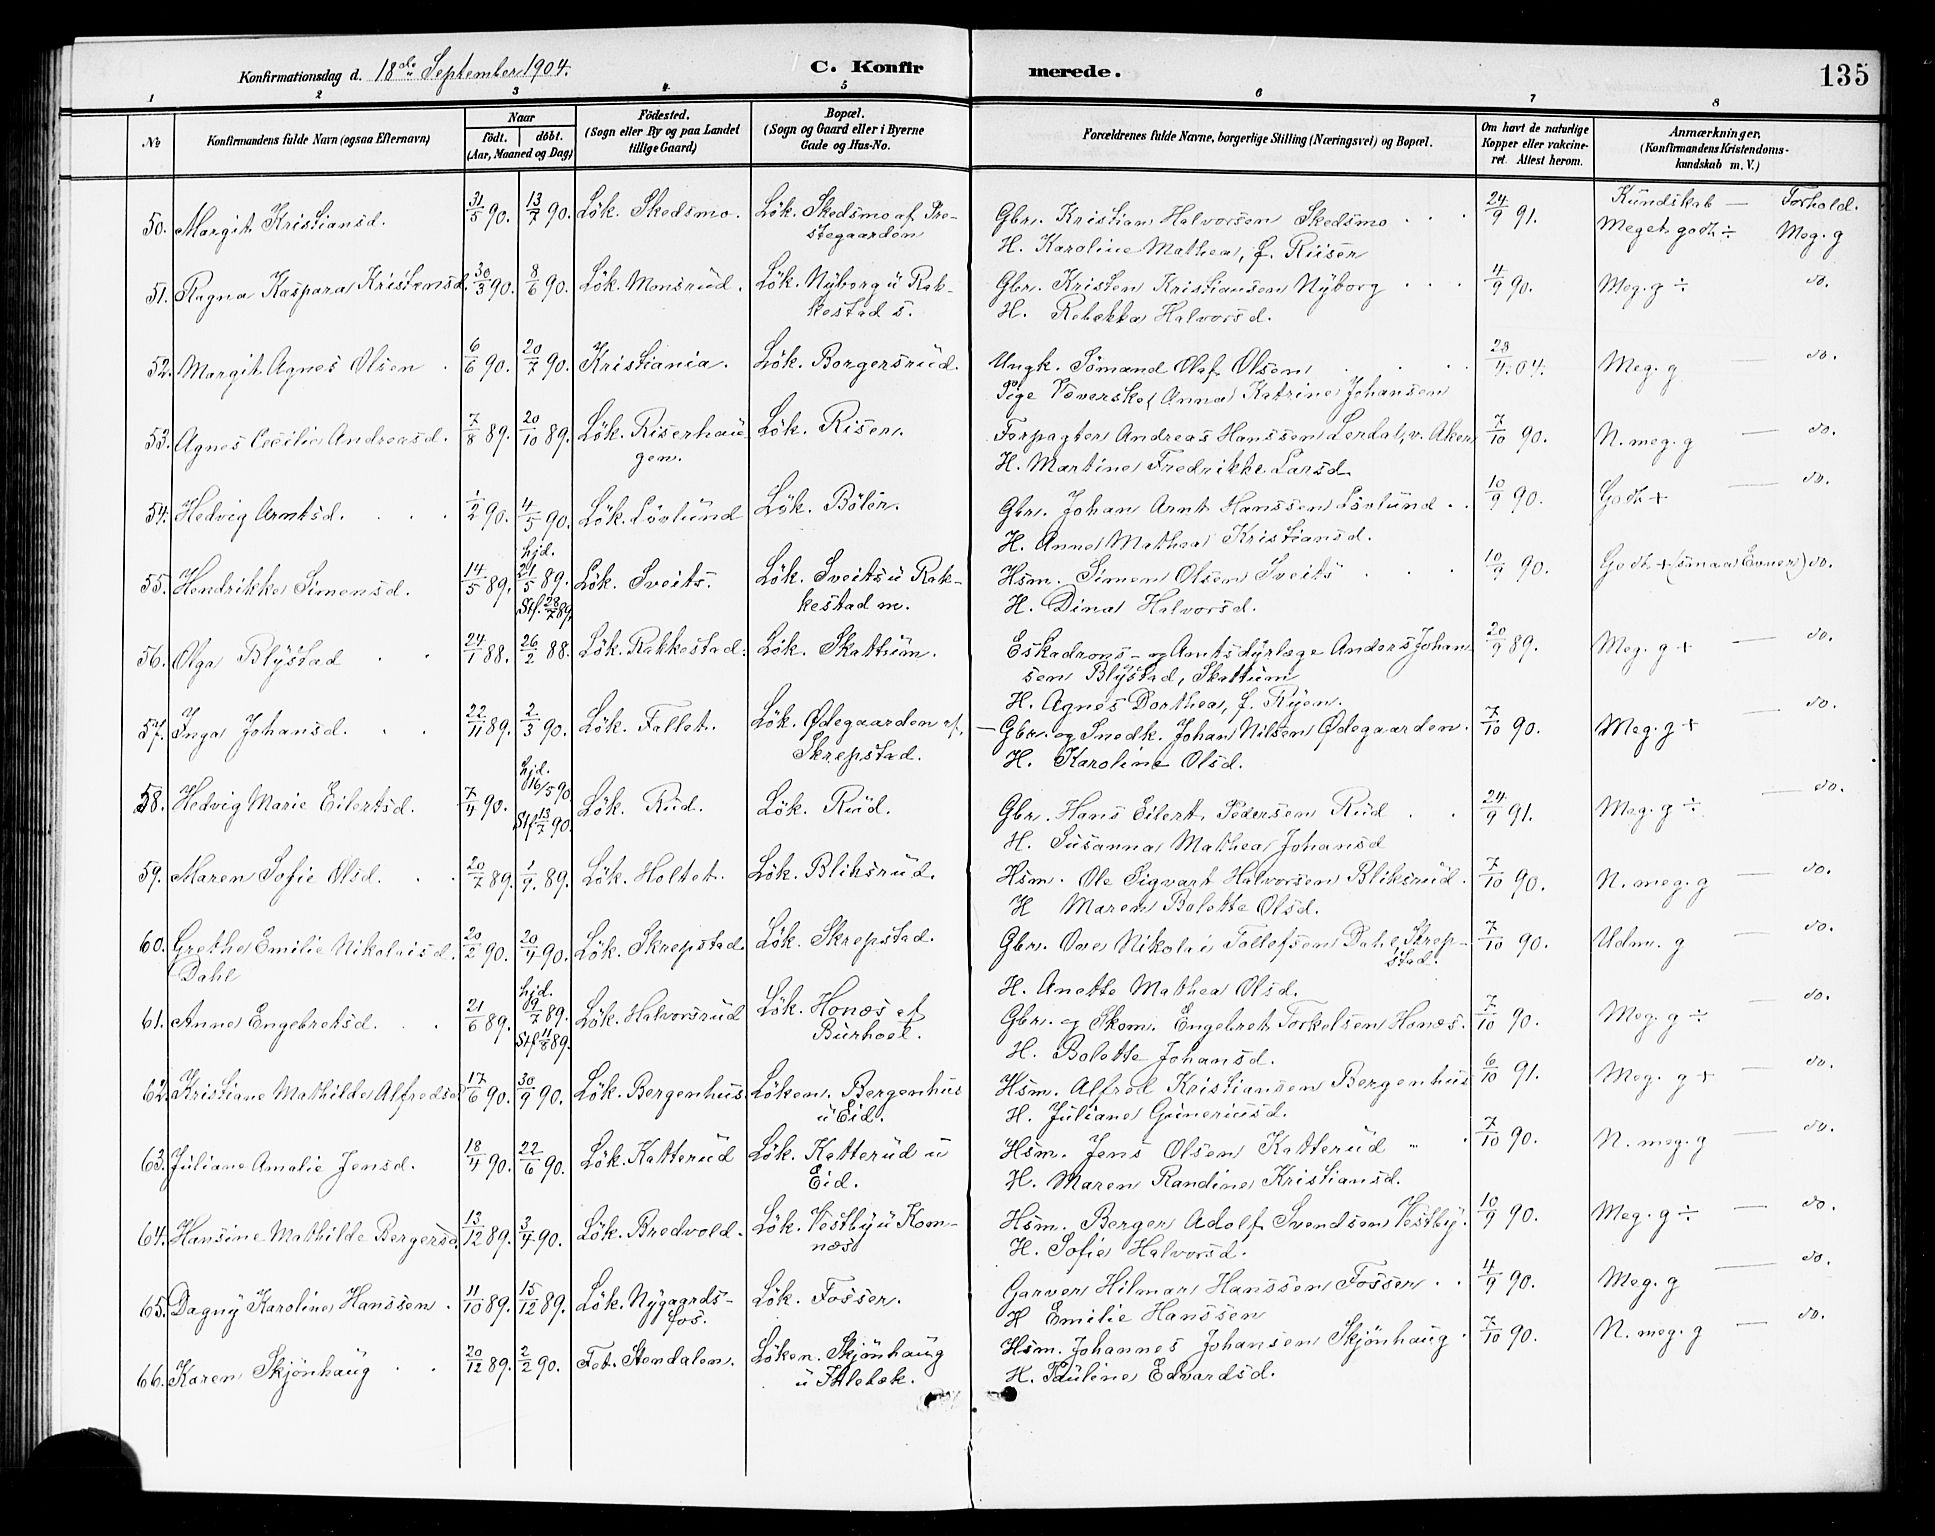 Konfirmationsdag d. 18de September 1904. C. Konfirmerede. 135
1 2 3 4 5 6 7 8
No Konfirmandens fulde Navn (ogsaa Efternavn) Naar født. døbt. (Aar, Maaned og Dag) Fødested. (Sogn eller By og paa Landet tillige Gaard) Bopæl. (Sogn og Gaard eller i Byerne Gade og Hus-No. Forældrenes fulde Navne, borgerlige Stilling (Næringsvei) og Bopæl. Om havt de naturlige Kopper eller vakcineret. Attest herom. Anmærkninger. (Konfirmandens Kristendomskundskab m. V.)
Kundskab — Forhold.
50. Margit Kristiansd. 31/5 90. 13/7 90. Løk. Skedsmo. Løk. Skedsmo af Prestegaarden Gbr. Kristian Halvorsen Skedsmo 24/9 91. Meget godt ÷ Meg. g
H. Karoline Mathea, f. Riiser
51. Ragna Kaspara Kristensd. 30/3 90. 8/6 90. Løk. Monsrud. Løk. Nyborg u Rakkestad s. Gbr. Kristen Kristiansen Nyborg 4/9 90. Meg. g ÷ do.
H. Rebekka Halvorsd.
52. Margit Agnes Olsen 6/6 90. 20/7 90. Kristiania. Løk. Borgersrud. Ungk. Sømand Olaf Olsen 28/4 04. Meg. g — do.
Pige Væverske Anna Katrine Johansen
53. Agnes Cecilie Andreasd. 7/8 89. 20/10 89. Løk. Riserhaugen. Løk. Riser. Forpagter Andreas Hanssen Lerdal, v. Aker 7/10 90. N. meg. g — do.
H. Martine Fredrikke Larsd
54. Hedvig Arntsd. 1/2 90. 4/5 90. Løk. Løvlund Løk. Bøler. Gbr. Johan Arnt Hanssen Løvlund 10/9 90. Godt + — do.
H. Anne Mathea Kristiansd.
55. Hendrikke Simensd. 14/5 89. hjd. 21/5 89. Stf. 28/7 89. Løk. Sveits. Løk. Sveits u Rakkestad m. Hsm. Simen Olsen Sveits 10/9 90. Godt + (smaa Evner) do.
H. Dina Halvorsd.
56. Olga Blystad 24/1 88. 26/2 88. Løk. Rakkestad. Løk. Skattum. Eskadrons- og Amtsdyrlæge Anders Johansen Blystad, Skattum 20/9 89. Meg. g + — do.
H. Agnes Dorthea, f. Ryen.
57. Inga Johansd. 22/11 89. 2/3 90. Løk. Fallet. Løk. Ødegaarden af Skrepstad. — Gbr. og Snedk. Johan Nilsen Ødegaarden. 7/10 90. Meg. g + — do.
H. Karoline Olsd.
58. Hedvig Marie Eilertsd. 7/4 90. hjd. 16/5 90 Stf 13/7 90. Løk. Rud. Løk. Rud. Gbr. Hans Eilert Pedersen Rud 24/9 91. Meg. g ÷ — do.
H. Susanna Mathea Johansd
59. Maren Sofie Olsd. 20/7 89. 1/9. 89. Løk. Holtet. Løk. Bliksrud. Hsm. Ole Sigvart Halvorsen Bliksrud. 7/10 90. N. meg. g — do.
H Maren Bolette Olsd.
60. Grethe Emilie Nikolaisd. Dahl 20/2 90. 20/4 90. Løk. Skrepstad. Løk. Skrepstad. Gbr. Ove Nikolai Tollefsen Dahl, Skrepstad. 7/10 90. Udm. g — do.
H. Anette Mathea Olsd.
61. Anne Engebretsd. 21/6 89. hjd. 9/7 89. Stf 11/8 89. Løk. Halvorsrud Løk. Honæs af Burhoel. Gbr. og Skom. Engebret Torkelsen Honæs. 7/10 90. Meg. g ÷ — do.
H. Bolette Johansd.
62. Kristiane Mathilde Alfredsd 17/6 90. 30/9 90. Løk. Bergenhus. Løken. Bergenhus u Eid. Hsm. Alfred Kristiansen Bergenhus 6/10 91. Meg. g + — do.
H. Juliane Guneriusd.
63. Juliane Amalie Jensd. 18/4 90. 22/6 90. Løk. Katterud Løk. Katterud u Eid. Hsm. Jens Olsen Katterud 7/10 90. N. meg. g — do.
H. Maren Randine Kristiansd.
64. Hansine Mathilde Bergersd. 13/12 89. 3/4 90. Løk. Bredvold. Løk. Vestby u Komnæs Hsm. Berger Adolf Svendsen Vestby. 10/9 90. Meg. g ÷ — do.
H. Sofie Halvorsd.
65. Dagny Karoline Hanssen. 11/10 89. 15/12 89. Løk. Nygaardsfos. Løk. Fosser. Garver Hilmar Hanssen Fosser 4/9 90. Meg. g — do.
H Emilie Hanssen
66. Karen Skjønhaug 20/12 89. 2/2 90. Fet. Stendalen. Løken. Skjønhaug u Ihlebek. Hsm. Johannes Johansen Skjønhaug. 7/10 90. N. meg. g — do.
H. Pauline Edvardsd.